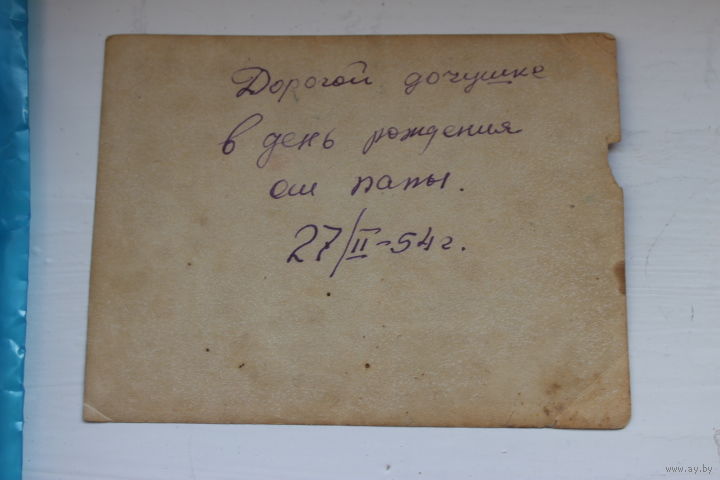 Дорогой дочушке
в день рождения
от папы.
27/II-54г.
www.ay.by